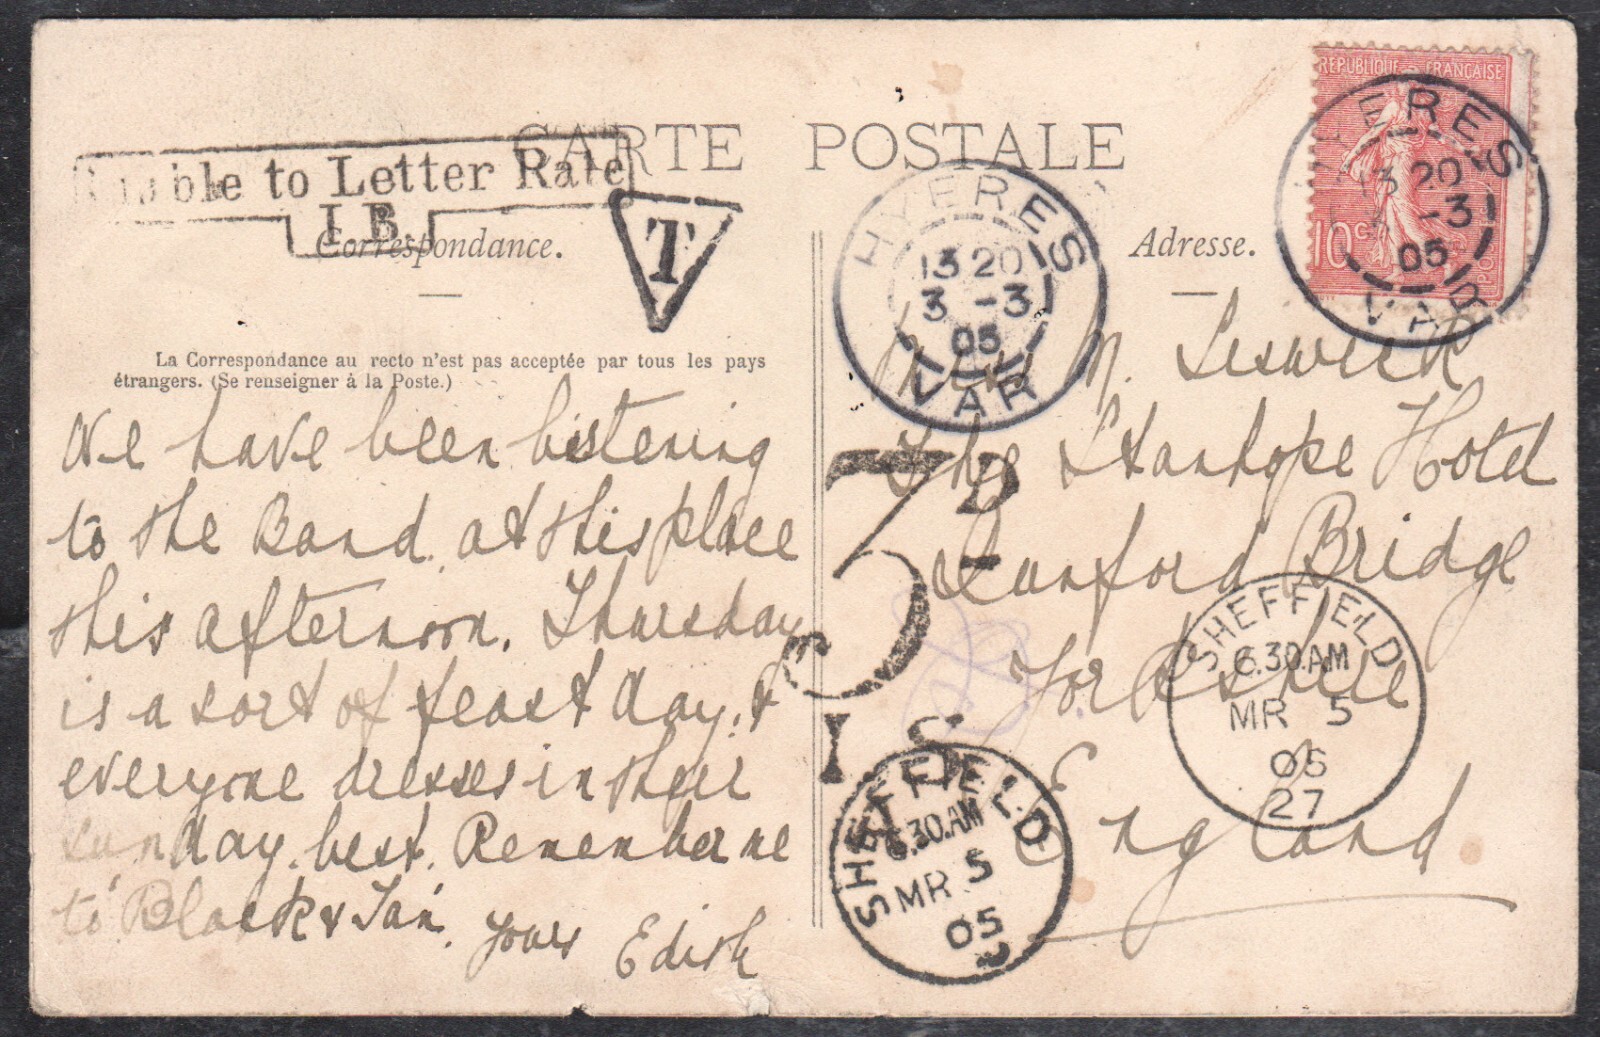 CARTE POSTALE
ble to Letter Rate
I.B.
T
Correspondance.
La Correspondance au recto n'est pas acceptée par tous les pays
étrangers. (Se renseigner à la Poste.)
We have been listening
to the Band at this place
this afternoon. Thursday
is a sort of feast day. &
everyone dresses in their
sunday best. Remember me
to Black & Tan.
Yours Edith
HYERES
13 20
3 -3
05
VAR
3D
I.S.
SHEFFIELD
6.30.AM
MR 5
05
REPUBLIQUE FRANÇAISE
10c
POS
HYERES
13 20
-3
05
VAR
Adresse.
M. Leswick
The Stanhope Hotel
Dunford Bridge
Yorkshire
England.
SHEFFIELD
6.30.AM
MR 5
05
27